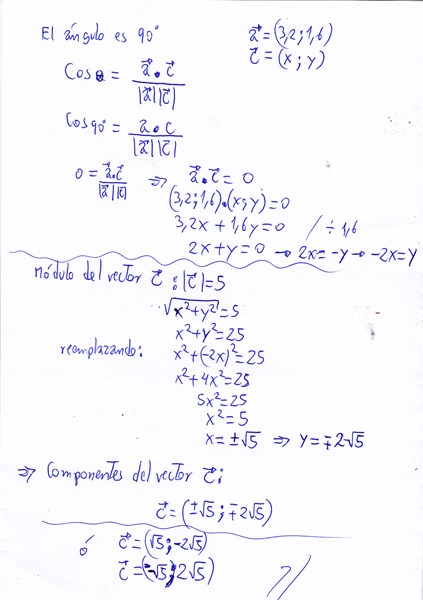 El ángulo es 90°
a⃗ = (3,2 ; 1,6)
c⃗ = (x ; y)
Cos α = a⃗ • c⃗ / |a⃗| |c⃗|
Cos 90° = a • c / |a⃗| |c⃗|
0 = a⃗ • c⃗ / |a⃗| |c⃗| ⇒ a⃗ • c⃗ = 0
(3,2 ; 1,6) • (x ; y) = 0
3,2x + 1,6y = 0 / ÷ 1,6
2x + y = 0 → 2x = -y → -2x = y
módulo del vector c⃗ : |c⃗| = 5
√x²+y² = 5
x² + y² = 25
reamplazando: x² + (-2x)² = 25
x² + 4x² = 25
5x² = 25
x² = 5
x = ±√5 ⇒ y = ∓2√5
⇒ Componentes del vector c⃗ :
c⃗ = (±√5 ; ∓2√5)
ó c⃗ = (√5 ; -2√5)
c⃗ = (-√5 ; 2√5)